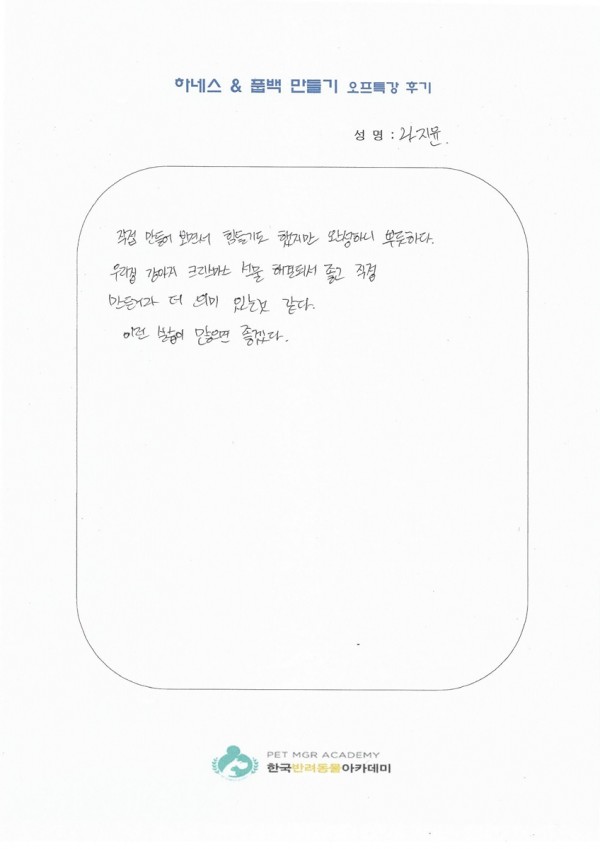 하네스 & 풉백 만들기 오프특강 후기
성 명 : 라지윤.
직접 만들어 보면서 힘들기도 했지만 완성하니 뿌듯하다.
우리집 강아지 크리스마스 선물 해주되서 좋고 직접
만든거라 더 의미 있는것 같다.
이런 수업이 많으면 좋겠다.
PET MGR ACADEMY
한국반려동물아카데미